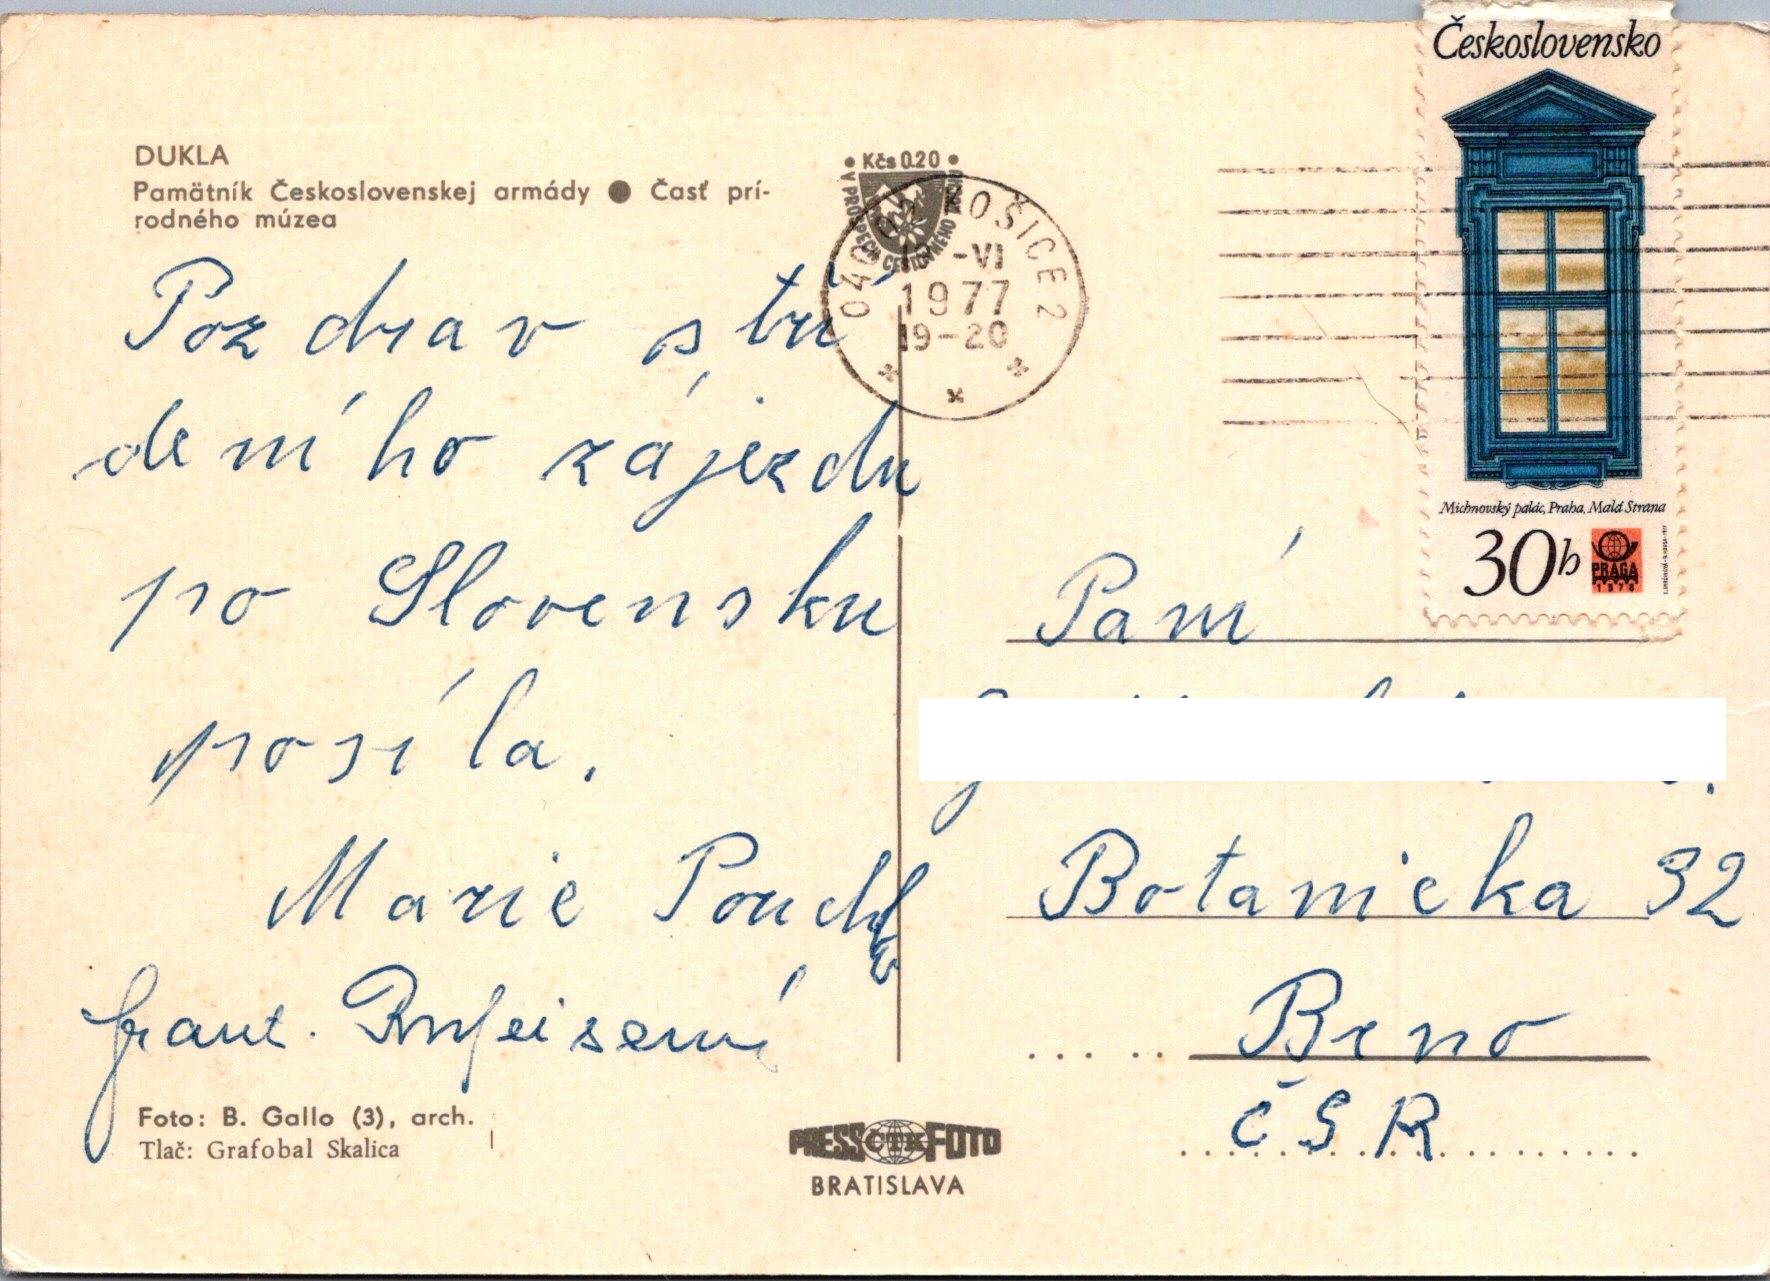 Československo
Michnovský palác, Praha, Malá Strana
30h
PRAGA
1978
DUKLA
Pamätník Československej armády ● Časť prí-
rodného múzea
• Kčs 0.20 •
V PROSPECH CESTOVNÉHO RUCHU
040 02 KOŠICE 2
-VI
1977
19-20
Pozdrav s tří
deního zájezdu
po Slovensku
posíla.
Marie Pouch
frant.
Paní
Botanicka 32
Brno
ČSR
Foto: B. Gallo (3), arch.
Tlač: Grafobal Skalica
PRESS ČTK FOTO
BRATISLAVA